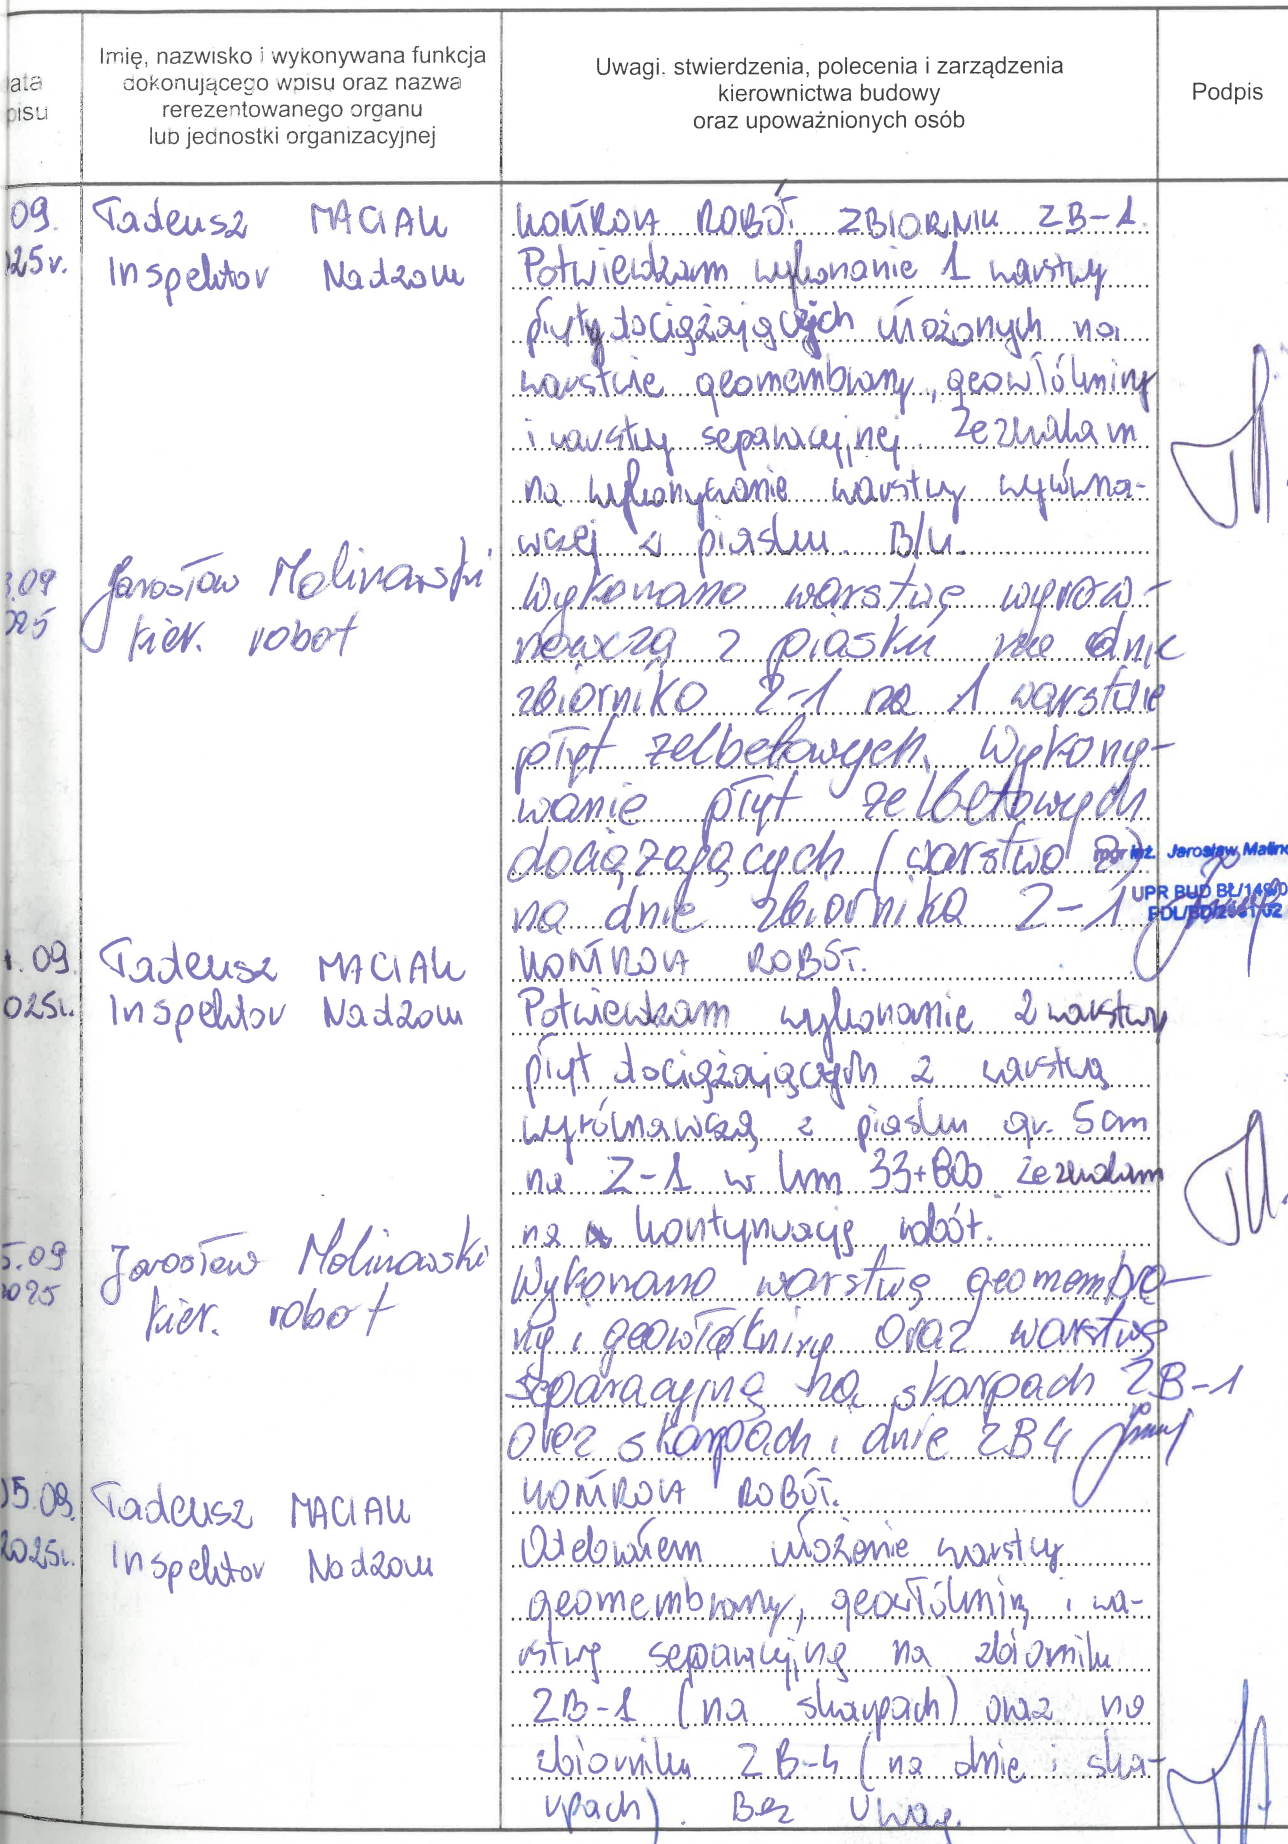 ata
pisu
Imię, nazwisko i wykonywana funkcja
dokonującego wpisu oraz nazwa
rerezentowanego organu
lub jednostki organizacyjnej
Uwagi, stwierdzenia, polecenia i zarządzenia
kierownictwa budowy
oraz upoważnionych osób
Podpis
09.
025r.
Tadeusz MACIAK
Inspektor Nadzoru
KONTROLA ROBÓT ZBIORNIK ZB-1.
Potwierdzam wykonanie 1 warstwy
płyty dociążających ułożonych na
warstwie geomembrany, geowłókniny
i warstwy separacyjnej. Zezwalam
na wykonywanie warstwy wyrówna-
wczej z piasku. B/U.
3.09
025
Jarosław Malinowski
kier. robot
Wykonano warstwę wyrów-
nawczą z piasku na dnie
zbiornika Z-1 na 1 warstwie
płyt żelbetowych. Wykony-
wanie płyt żelbetowych
dociążających (warstwa 2)
na dnie zbiornika Z-1
mgr inż. Jarosław Malino
UPR BUD BŁ/149/0
PDL/BD/2981/02
.09.
025r.
Tadeusz MACIAK
Inspektor Nadzoru
KONTROLA ROBÓT.
Potwierdzam wykonanie 2 warstwy
płyt dociążających z warstwą
wyrównawczą z piasku gr. 5cm
na Z-1 w km 33+800. Zezwalam
na kontynuację robót.
5.09
2025
Jarosław Malinowski
kier. robot
Wykonano warstwę geomembra-
ny i geowłókniny oraz warstwę
separacyjną na skarpach ZB-1
oraz skarpach i dnie ZB4
05.09.
2025r.
Tadeusz MACIAK
Inspektor Nadzoru
KONTROLA ROBÓT.
Odebrałem ułożenie warstwy
geomembrany, geowłókninę i wa-
rstwę separacyjną na zbiorniku
ZB-1 (na skarpach) oraz na
zbiorniku ZB-4 (na dnie i ska-
rpach). Bez Uwag.